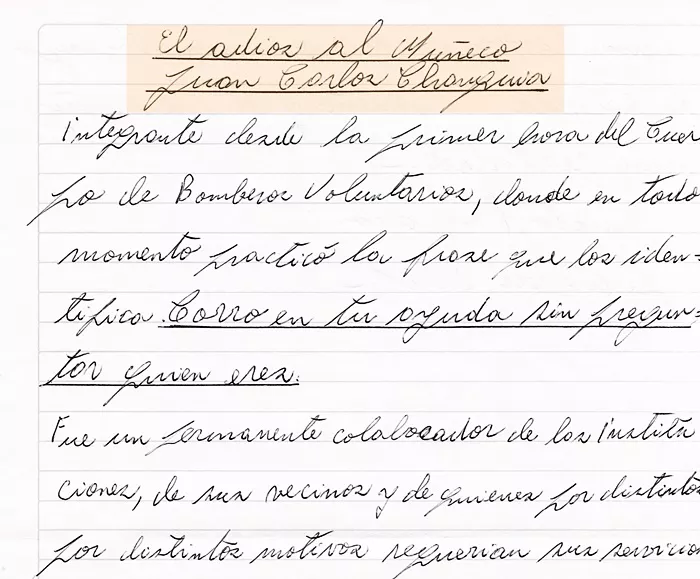 El adios al Muñeco
Juan Carlos Changuia
Integrante desde la primer hora del Cuer
po de Bomberos Voluntarios, donde en todo
momento practicó la frase que los iden=
tifica. Corro en tu ayuda sin pregun=
tar quien eres.
Fue un permanente colabocador de las Institu
ciones, de sus vecinos y de quienes por distintos
por distintos motivos requerian sus servicio